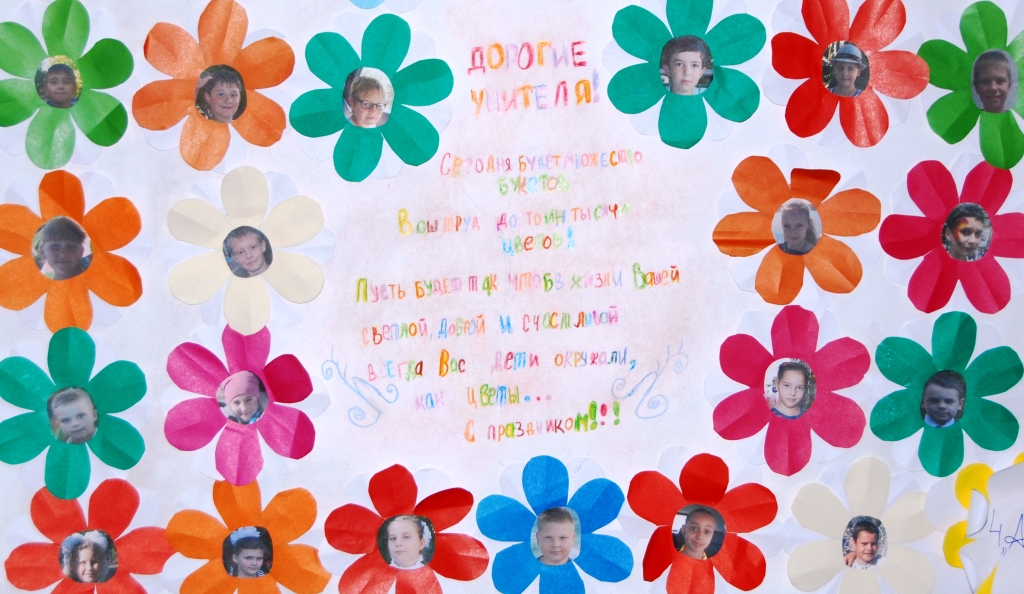 ДОРОГИЕ
УЧИТЕЛЯ!
Сегодня будет множество
букетов
Ваш труд достоин тысячи
цветов!
Пусть будет так чтоб в жизни Вашей
светлой, доброй и счастливой
всегда Вас дети окружали,
как цветы...
С праздником!!!
4 "А